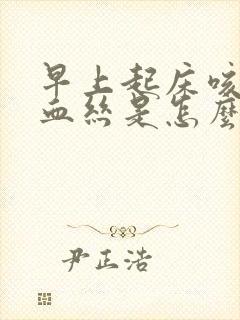 早上起床咳
血丝是怎麼
尹正浩